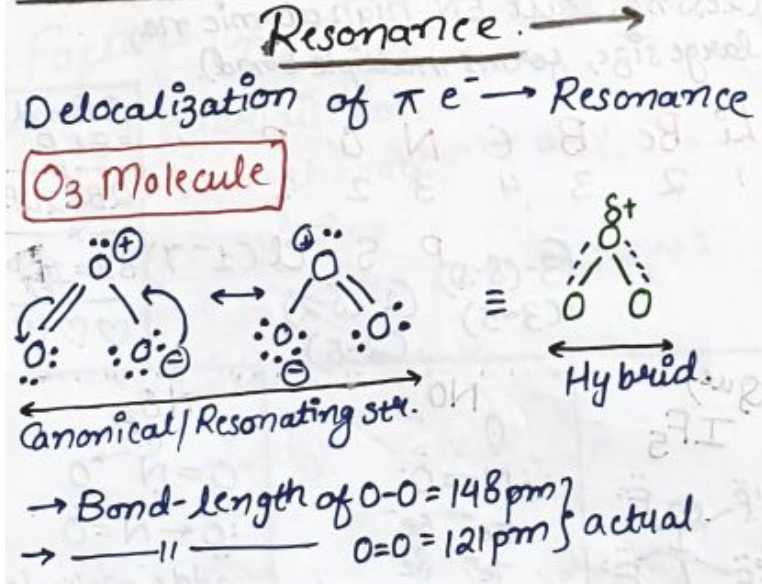 Resonance. →
Delocalization of π e⁻ → Resonance
O₃ Molecule
Ö⊕ ⊕Ö δ+
O: :O: ⊖ ↔ :O: ⊖ O: ≡ O O O
Canonical/Resonating str.
Hybrid.
→ Bond-length of O-O = 148 pm } actual.
→ —— 〃 —— O=O = 121 pm